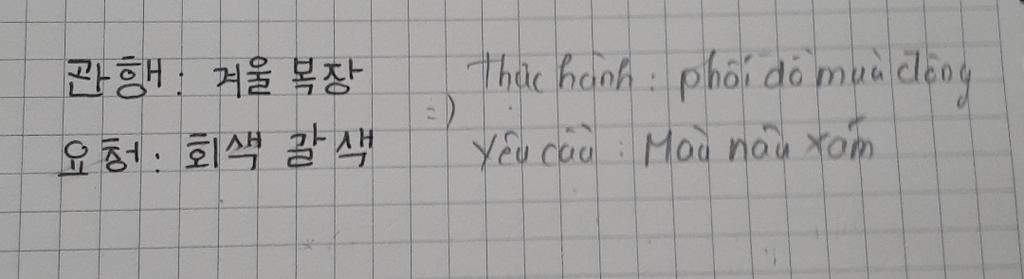 관행: 겨울 복장 => Thực hành: phối đồ mùa đông
요청: 회색 갈색 Yêu cầu: Màu nâu xám